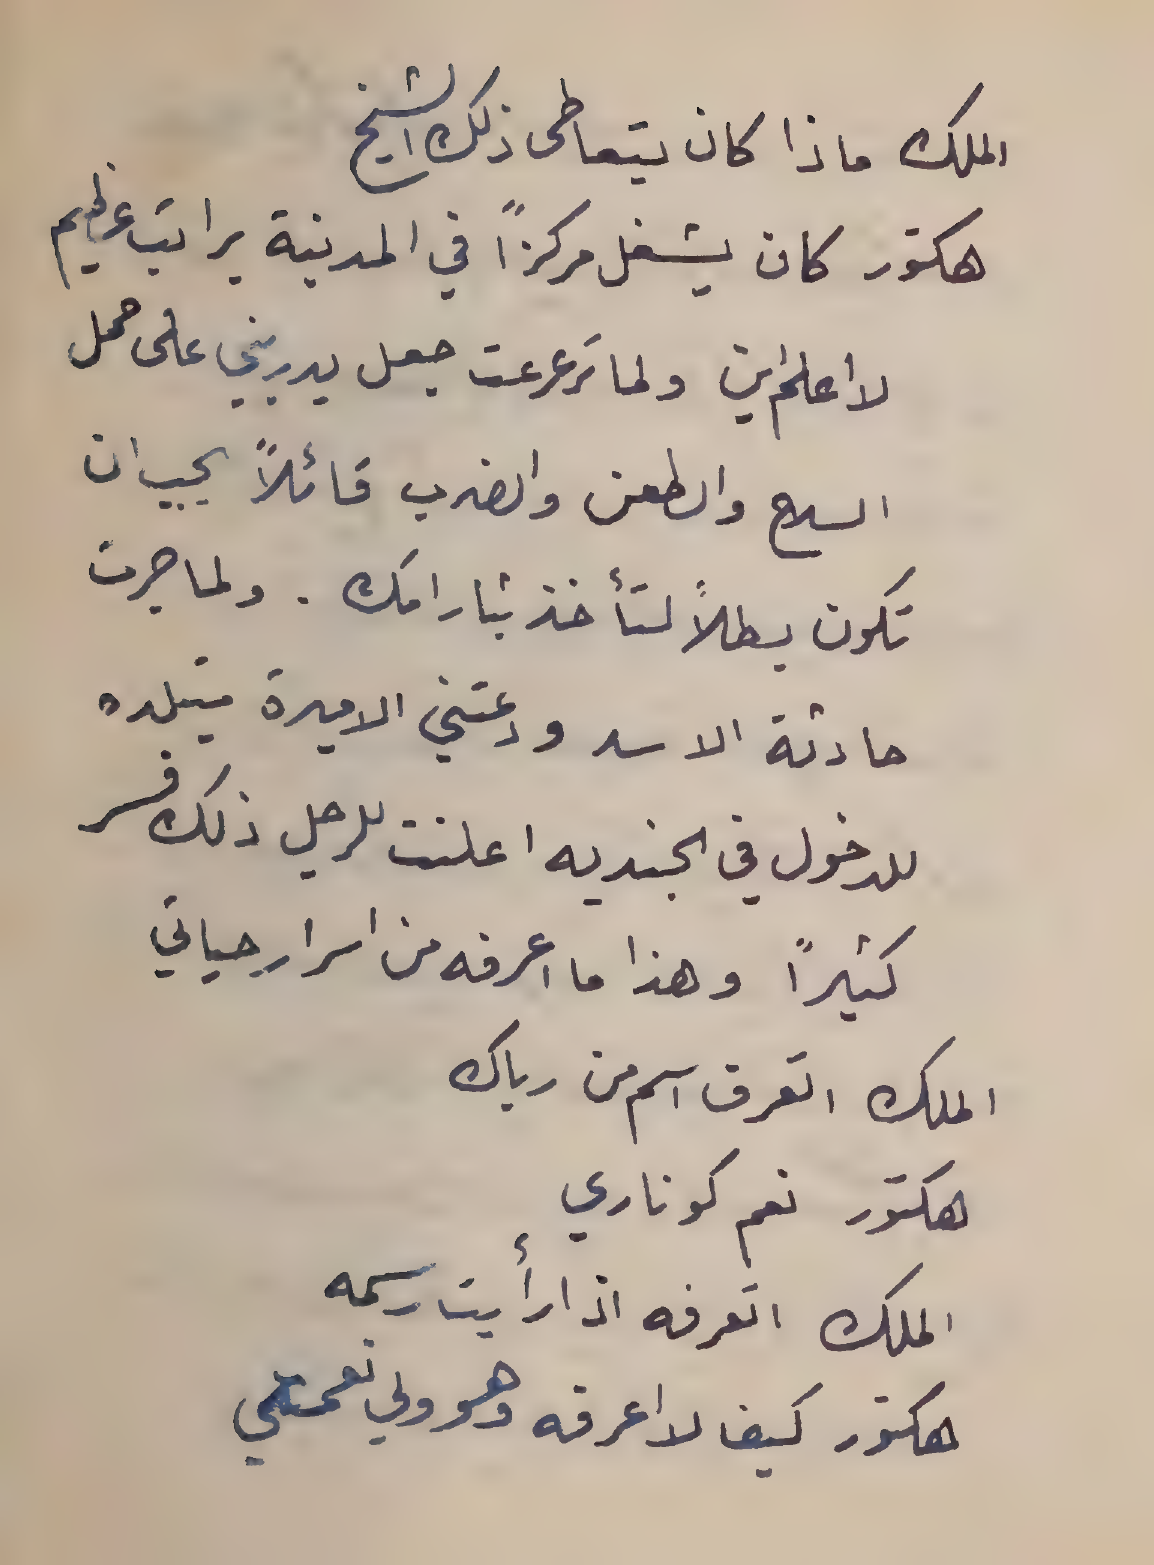 الملك ماذا كان يتعاطى ذلك الشيخ
هكتور كان يشغل مركزاً في المدينة براتب عظيم
لا اعلم اين ولما ترعرعت جعل يدربني على حمل
السلاح والطعن والضرب قائلاً يجب ان
تكون بطلاً لتأخذ بثار امك . ولما جرت
حادثة الاسد ودعتني الاميرة متيلده
للدخول في الجنديه اعلنت للرجل ذلك فسر
كثيراً وهذا ما اعرفه من اسرار حياتي
الملك اتعرف اسم من رباك
هكتور نعم كوناري
الملك اتعرفه اذا رأيت رسمه
هكتور كيف لا اعرفه وهو ولي نعمتي